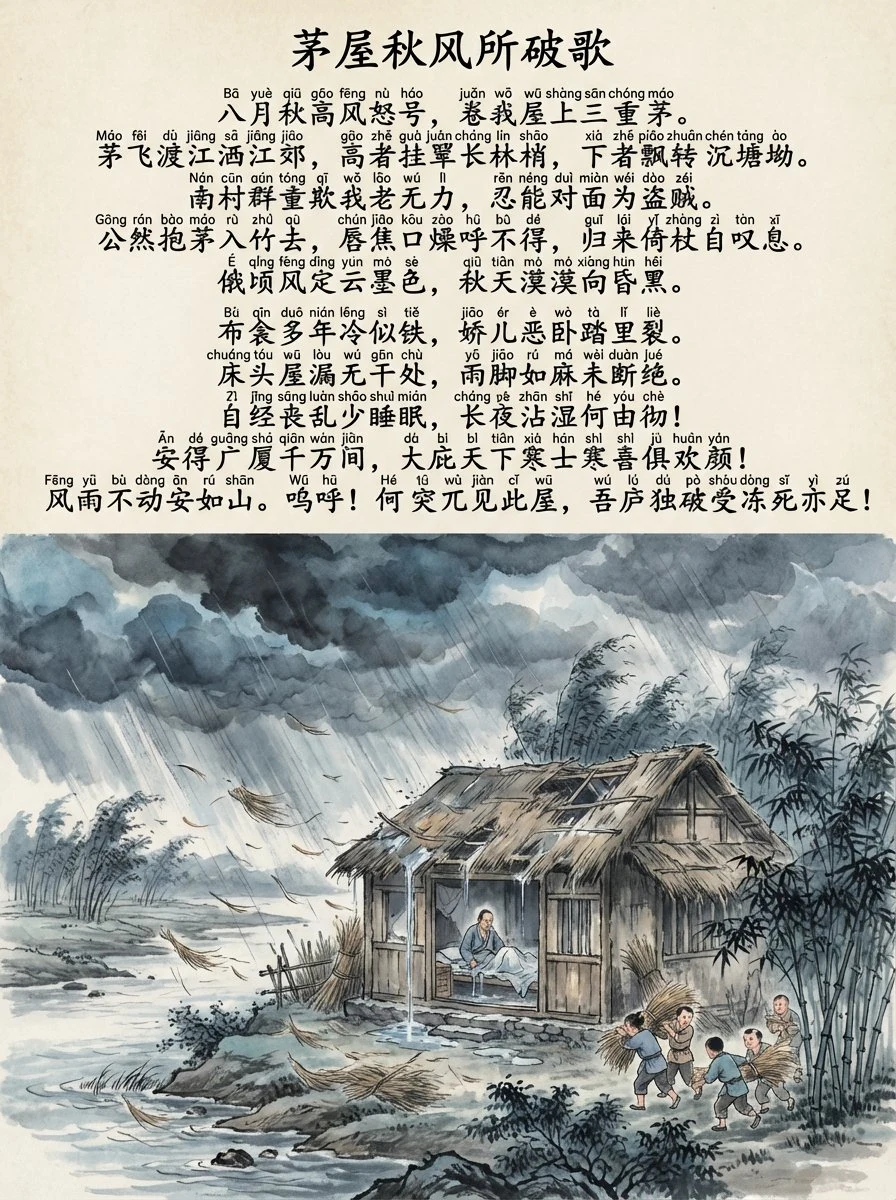 茅屋秋风所破歌
Bā yuè qiū gāo fēng nù háo juǎn wō wū shàng sān chóng máo
八月秋高风怒号，卷我屋上三重茅。
Máo fēi dù jiāng sǎ jiāng jiāo gāo zhě guà juàn cháng lín shāo xià zhě piāo zhuǎn chén táng ào
茅飞渡江洒江郊，高者挂罥长林梢，下者飘转沉塘坳。
Nán cūn qún tóng qī wǒ lǎo wú lì rěn néng duì miàn wéi dào zéi
南村群童欺我老无力，忍能对面为盗贼。
Gōng rán bào máo rù zhú qù chún jiāo kōu zào hū bù dé guī lái yǐ zhàng zì tàn xī
公然抱茅入竹去，唇焦口燥呼不得，归来倚杖自叹息。
É qǐng fēng dìng yún mò sè qiū tiān mò mò xiàng hūn hēi
俄顷风定云墨色，秋天漠漠向昏黑。
Bù qīn duō nián lěng sì tiě jiāo ér è wò tà lǐ liè
布衾多年冷似铁，娇儿恶卧踏里裂。
chuáng tóu wū lòu wú gān chù yǔ jiǎo rú má wèi duàn jué
床头屋漏无干处，雨脚如麻未断绝。
Zì jīng sāng luàn shǎo shuì mián cháng yè zhān shī hé yóu chè
自经丧乱少睡眠，长夜沾湿何由彻！
Ān dé guǎng shà qiān wàn jiān dà bì tiān xià hán shì jù huān yán
安得广厦千万间，大庇天下寒士寒喜俱欢颜！
Fēng yǔ bù dòng ān rú shān Wū hū Hé wù jiàn cǐ wū wú lú dú pò shòu dòng sǐ yì zú
风雨不动安如山。呜呼！何突兀见此屋，吾庐独破受冻死亦足！